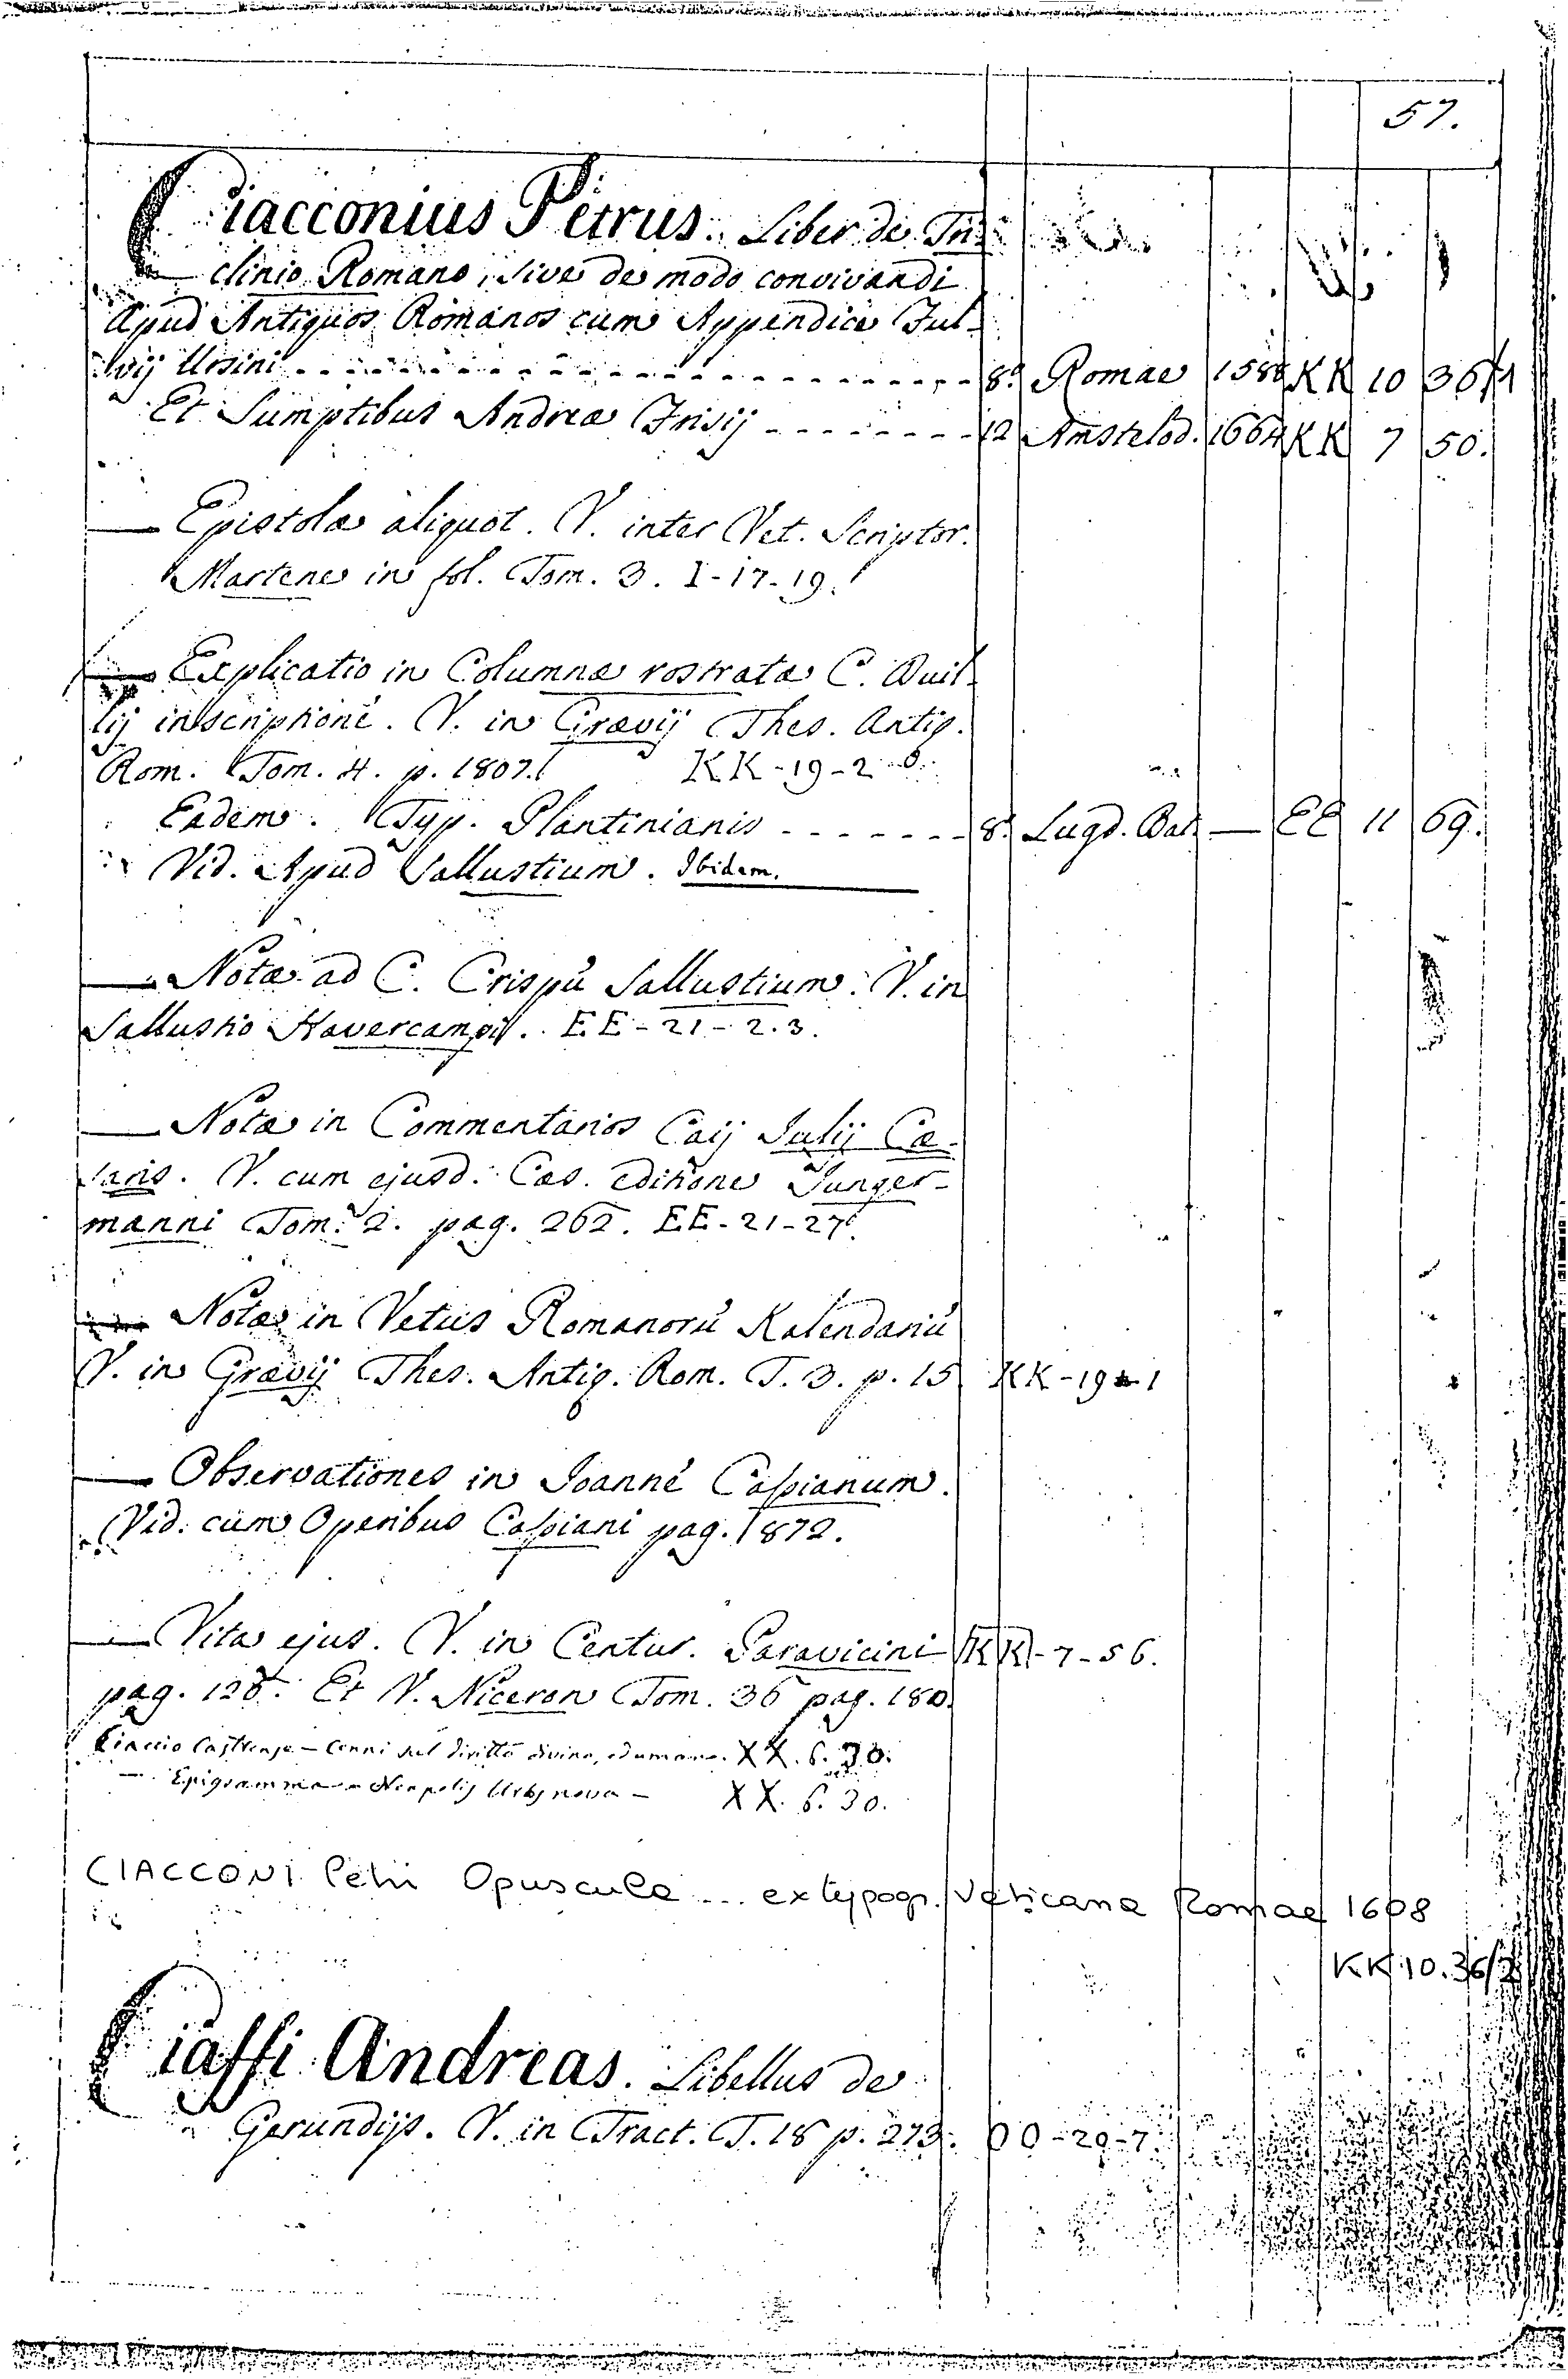 57.
Ciacconius Petrus. Liber de Tri-
clinio Romano, sive de modo convivandi
Apud Antiquos Romanos cum Appendice Ful-
vij Ursini - - - - - - - - 8.° Romae 1588 KK 10 36/1
Et Sumptibus Andreæ Frisij - - - - - - - - 12 Amstelod. 1664 KK 7 50.
— Epistolæ aliquot. V. inter Vet. Scriptor.
Martene in fol. Tom. 3. I-17-19.
— Explicatio in Columnæ rostratæ C. Duil-
lij inscriptionē. V. in Grævij Thes. Antiq.
Rom. Tom. 4. p. 1807. KK-19-2
Eadem. Typ. Plantinianis - - - - - - - 8.° Lugd. Bat. — EE 11 69.
Vid. Apud Sallustium. Ibidem.
— Notæ ad C. Crispū Sallustium. V. in
Sallustio Havercampi. EE-21-2.3.
— Notæ in Commentarios Caij Julij Cæ-
saris. V. cum ejusd. Cæs. editione Junger-
manni Tom. 2. pag. 262. EE-21-27.
— Notæ in Vetus Romanorū Kalendariū
V. in Grævij Thes. Antiq. Rom. T. 3. p. 15 KK-19-1
— Observationes in Joannē Cassianum.
Vid. cum Operibus Cassiani pag. 872.
— Vita ejus. V. in Centur. Paravicini KK-7-56.
pag. 128. Et V. Niceron Tom. 36 pag. 180.
Ciaccio Castrense — Cenni sul diritto divino, ed umano. XX. 6. 30.
— Epigramma Neapolis Urbs nova — XX. 6. 30.
CIACCONI Petri Opuscula ... ex typogr. Vaticana Romae 1608
KK 10. 36/2
Ciaffi Andreas. Libellus de
Gerundijs. V. in Tract. T. 18 p. 273. OO-20-7.